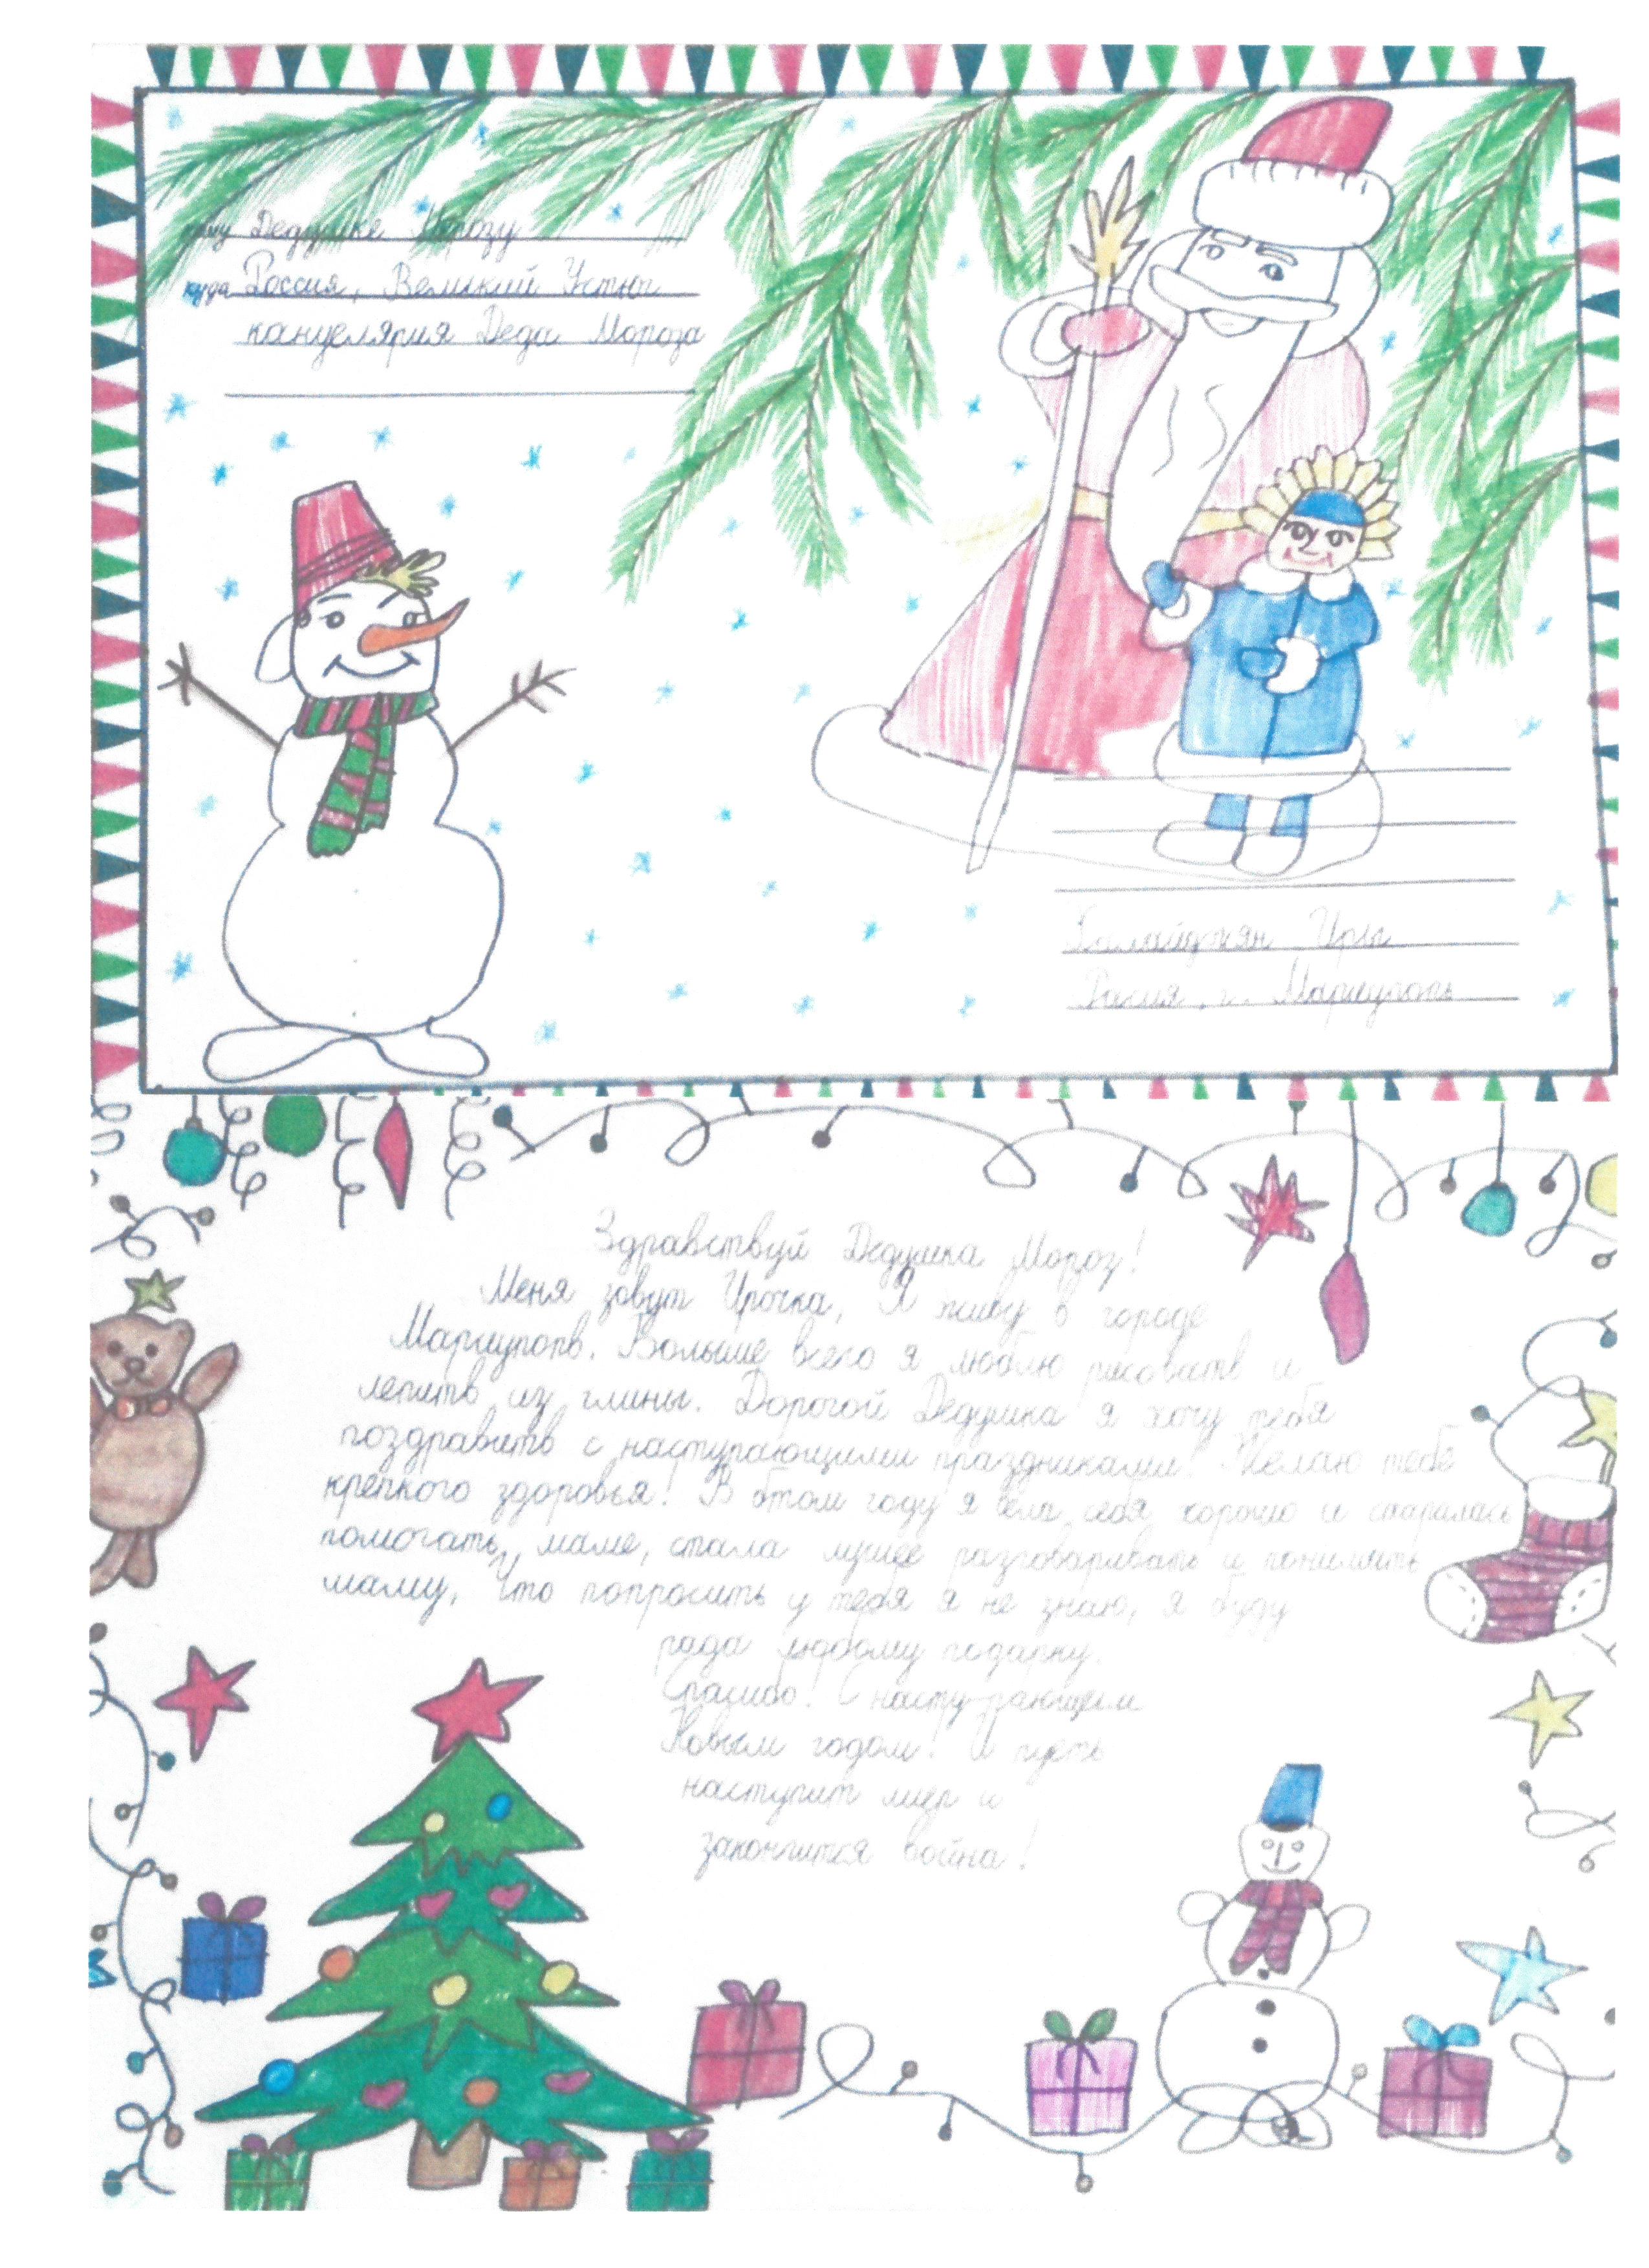 кому Дедушке Морозу
куда Россия, Великий Устюг
канцелярия Деда Мороза
Иры
г. Мариуполь
Здравствуй Дедушка Мороз!
Меня зовут Ирочка, Я живу в городе
Мариуполь. Больше всего я люблю рисовать и
лепить из глины. Дорогой Дедушка я хочу тебя
поздравить с наступающими праздниками! Желаю тебе
крепкого здоровья! В этом году я вела себя хорошо и старалась
помогать маме, стала лучше разговаривать и понимать
маму. Что попросить у тебя я не знаю, я буду
рада любому подарку.
Спасибо! С наступающем
Новым годом! И пусть
наступит мир и
закончится война!